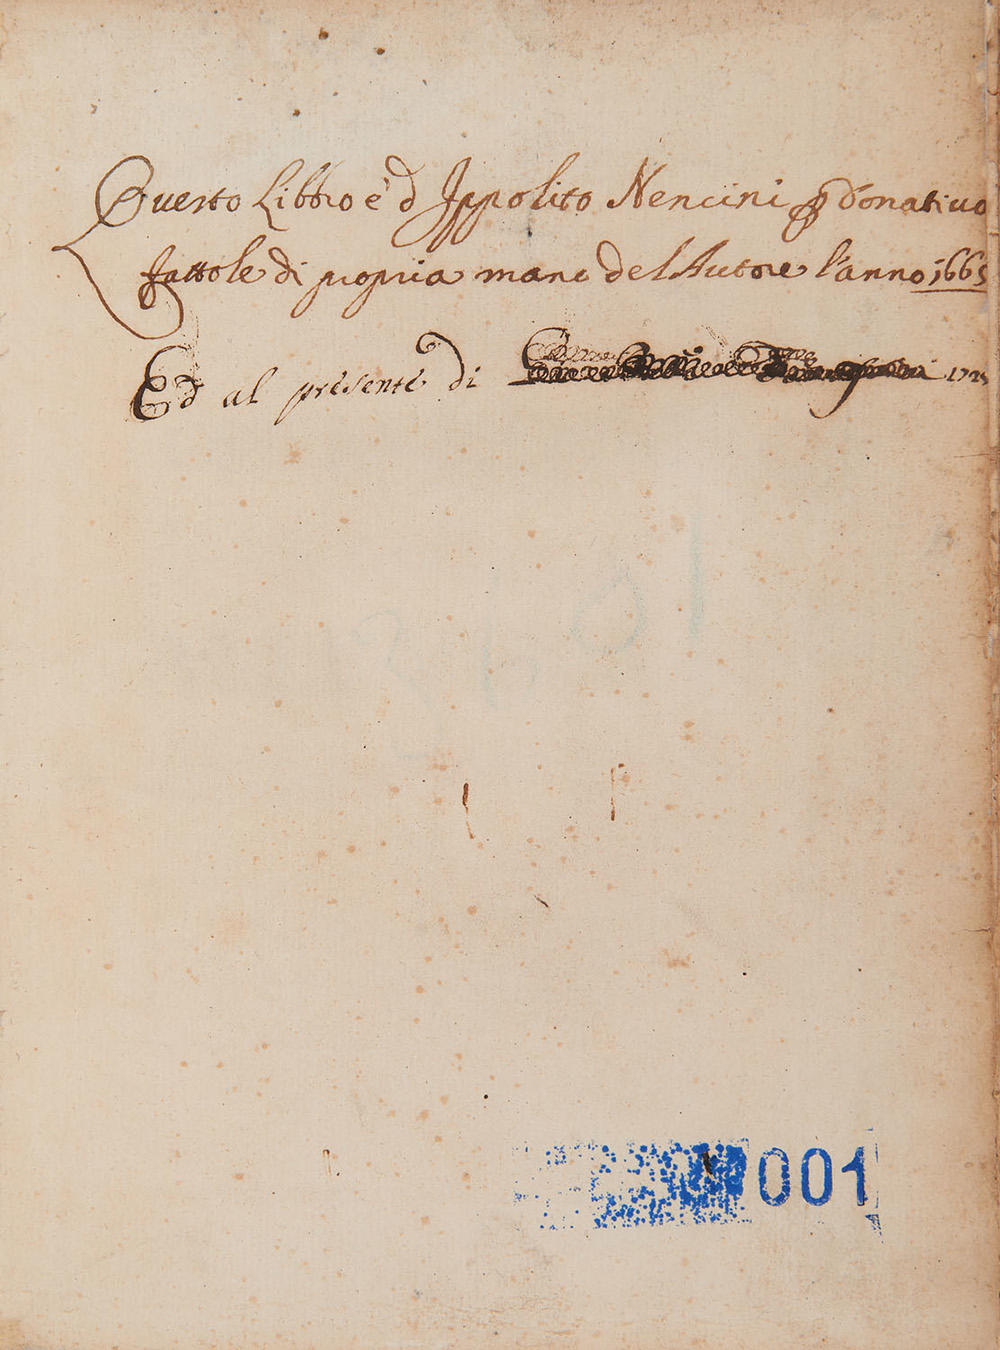 Questo Libbro è d Ippolito Nencini ꝑ donativo
fattole di propria mano del Autore l'anno 1665
Ed al presente di
001